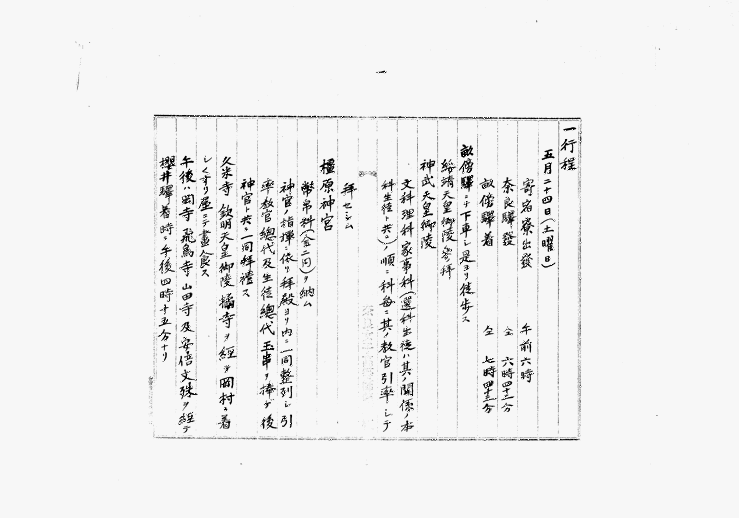 一行程
五月二十四日(土曜日)
寄宿寮出發 午前六時
奈良驛發 仝 六時四十三分
畝傍驛着 仝 七時四十三分
畝傍驛ニテ下車シ是ヨリ徒歩ス
綏靖天皇御陵参拜
神武天皇御陵
文科理科家事科(選科生徒ハ其ノ関係ノ本
科生徒ト共ニ)ノ順ニ科毎ニ其ノ教官引率シテ
拜セシム
橿原神宮
幣帛料(金二円)ヲ納ム
神官ノ指揮ニ依リ拜殿ヨリ内ニ一同整列シ引
率教官總代及生徒總代玉串ヲ捧ゲ後
神官ト共ニ一同拜禮ス
久米寺 欽明天皇御陵 橘寺ヲ経テ岡村ニ着
シくすり屋ニテ晝食ス
午後ハ岡寺 飛鳥寺 山田寺及安倍文殊ヲ経テ
櫻井驛着時ニ午後四時十五分ナリ